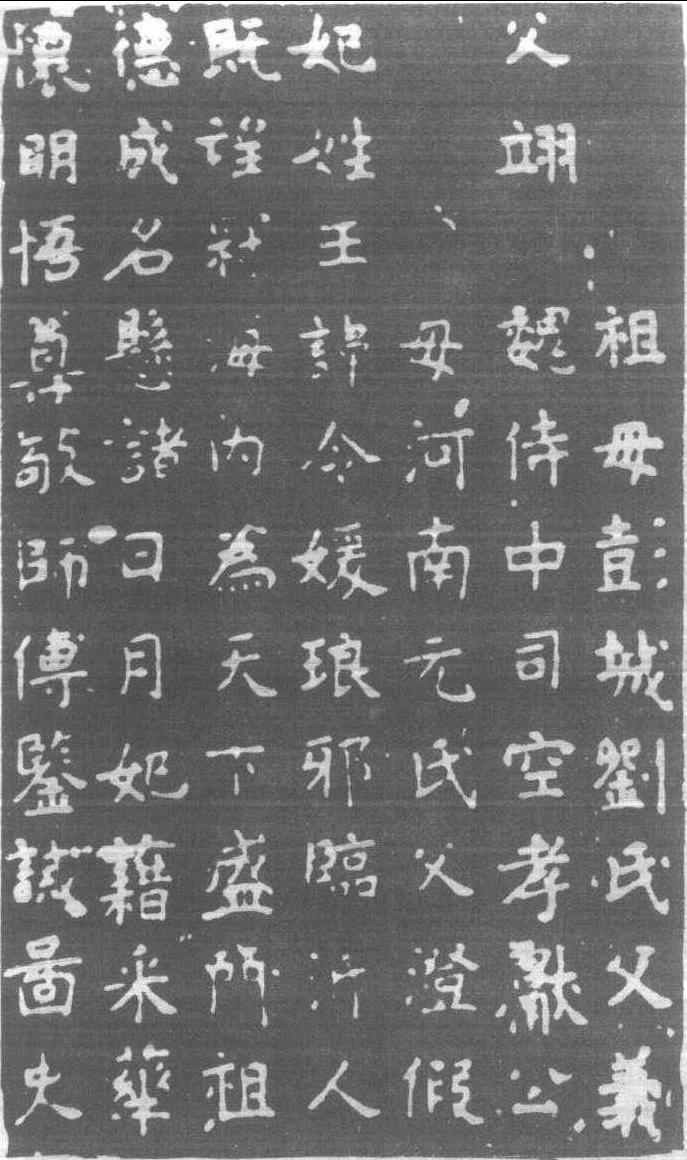 祖母彭城劉氏父義
父翊魏侍中司空孝獻公
母河南元氏父澄假
妃姓王諱令媛琅邪臨沂人
既詳於海內為天下盛門祖
德成名懸諸日月妃藉采華
懷明悟尊敬師傅鑒誡圖史